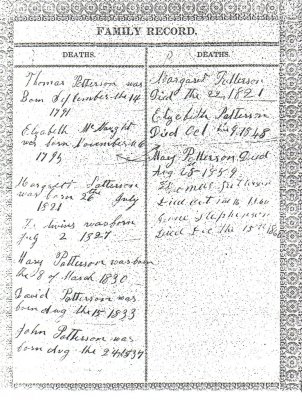 FAMILY RECORD.
DEATHS.
Thomas Patterson was
Born September the 14
1791
Elzabeth McNaught
was born November the 6
1795
Margrett Patterson
was born 26th July
1821
was born
2 1827
Mary Patterson was born
the 8 of March 1830
David Patterson was
born Aug the 15 1833
John Patterson was
born Aug the 24 1834
DEATHS.
Margaret Patterson
Died the 22 1821
Elzebeth Patterson
Died Oct 1848
Mary Patterson Died
Aug 1859
Thomas Patterson
Died Oct 1860
Stephenson
Died the 15